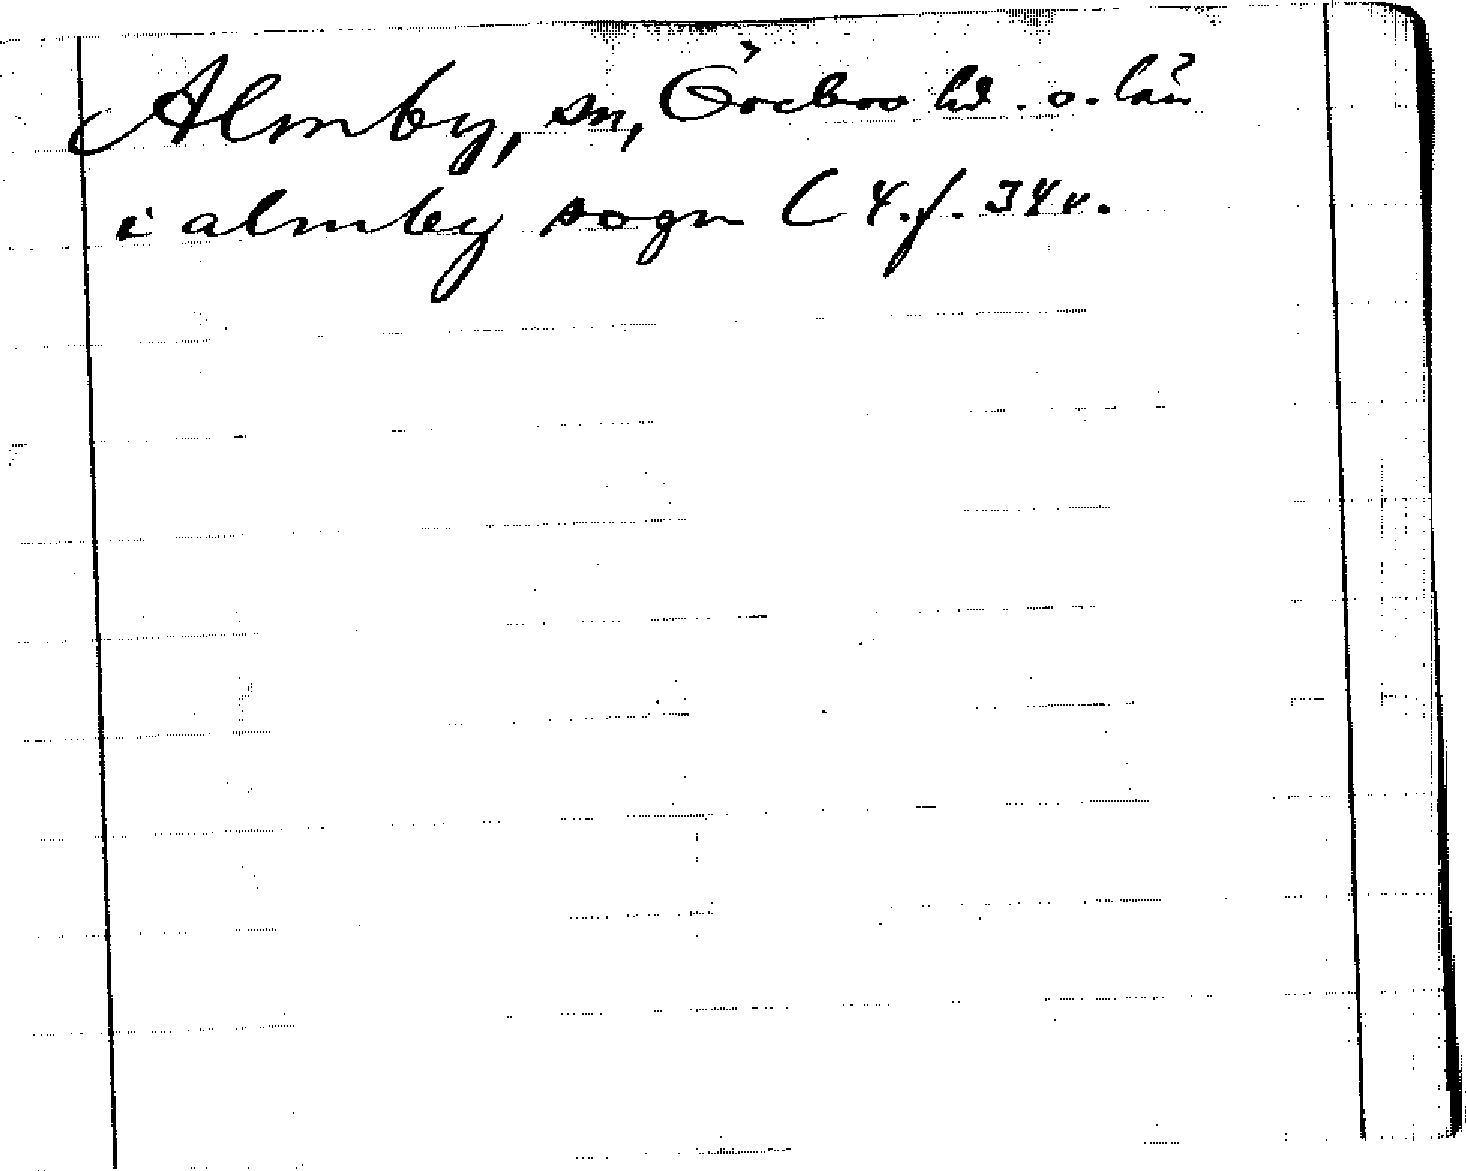 Almby, sn, Örebro hd. o. län
i almby sogn C 4. f. 34 v.